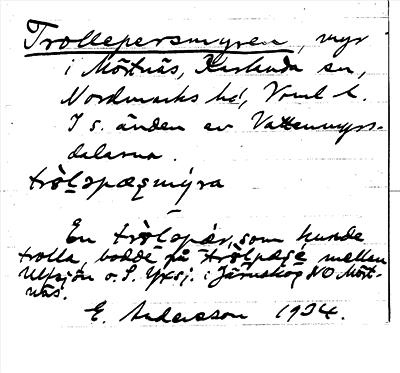 Trollepersmyren, myr
i Mörtnäs, Karlanda sn,
Nordmarks hd, Vrml l.
I s. änden av Vattenmyrs-
dalarna.
trolopæsmýra
En trolopär, som kunde
trolla, bodde på trolpæse mellan
Ulvsjön o. S. Yxsj. i Järnskog NO Mört-
näs.
E. Andersson 1934.